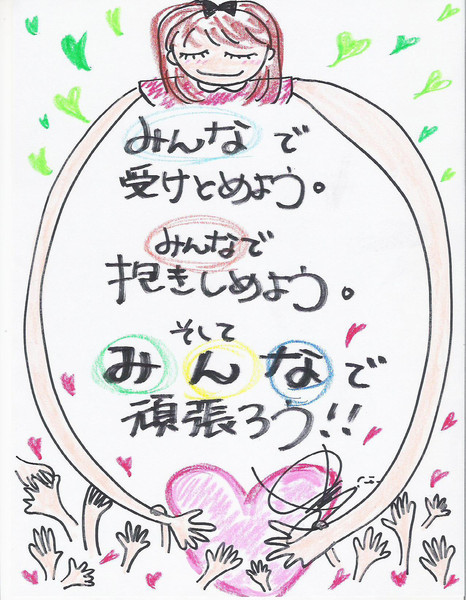 みんなで
受けとめよう。
みんなで
抱きしめよう。
そして
みんなで
頑張ろう!!